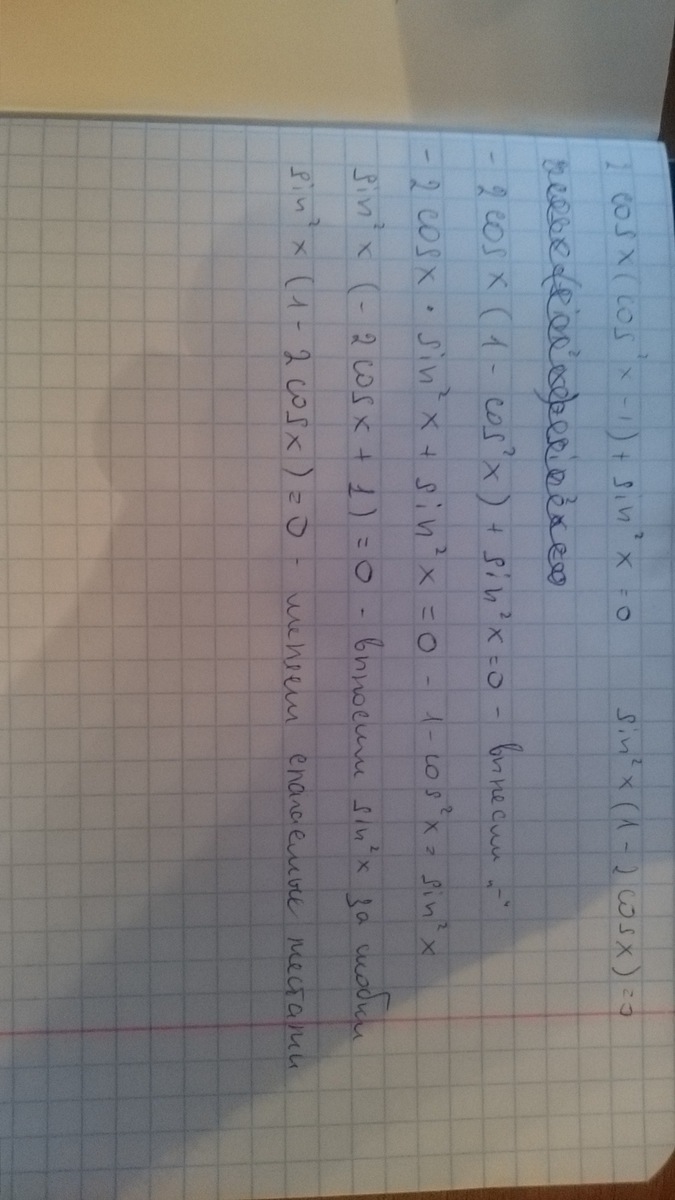 2 cos x (cos² x - 1) + sin² x = 0 sin² x (1 - 2 cos x) = 0
- 2 cos x (1 - cos² x) + sin² x = 0 - вынесли „-“
- 2 cos x · sin² x + sin² x = 0 - 1 - cos² x = sin² x
sin² x (- 2 cos x + 1) = 0 - выносим sin² x за скобки
sin² x (1 - 2 cos x) = 0 - меняем слагаемые местами